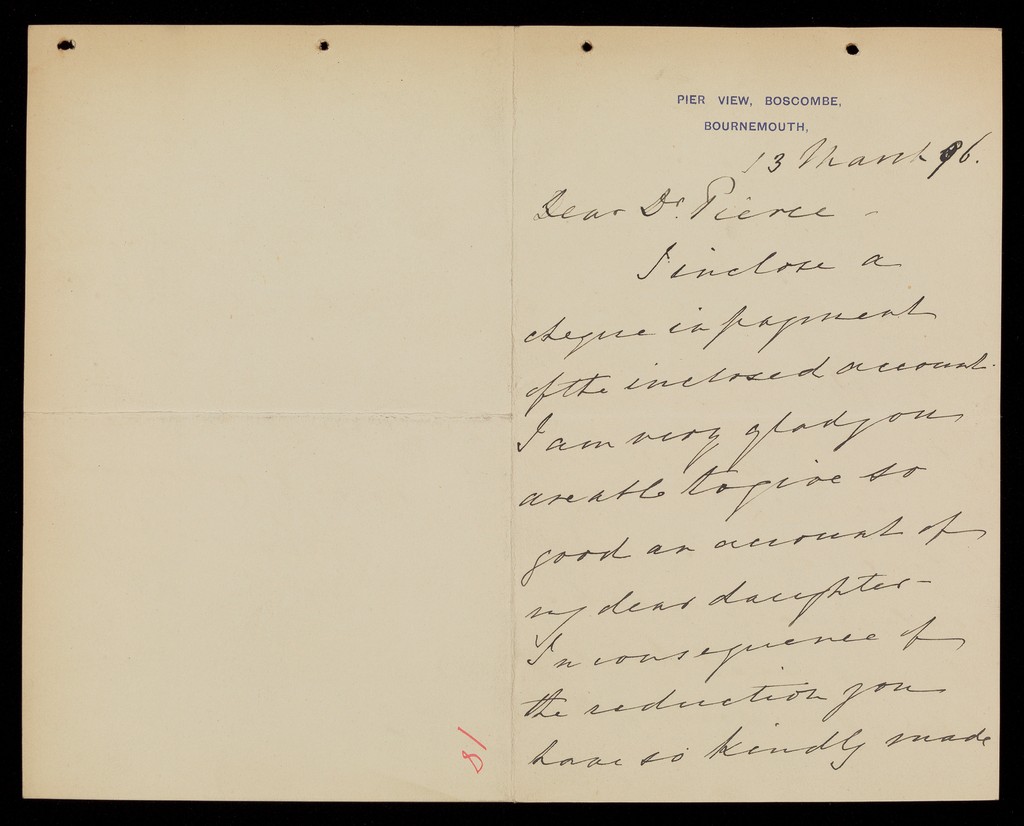 PIER VIEW, BOSCOMBE,
BOURNEMOUTH,
13 March 96.
Dear Dr. Pierce -
I inclose a
cheque in payment
of the inclosed account.
I am very glad you
are able to give so
good an account of
my dear daughter -
In consequence of
the reduction you
have so kindly made
81